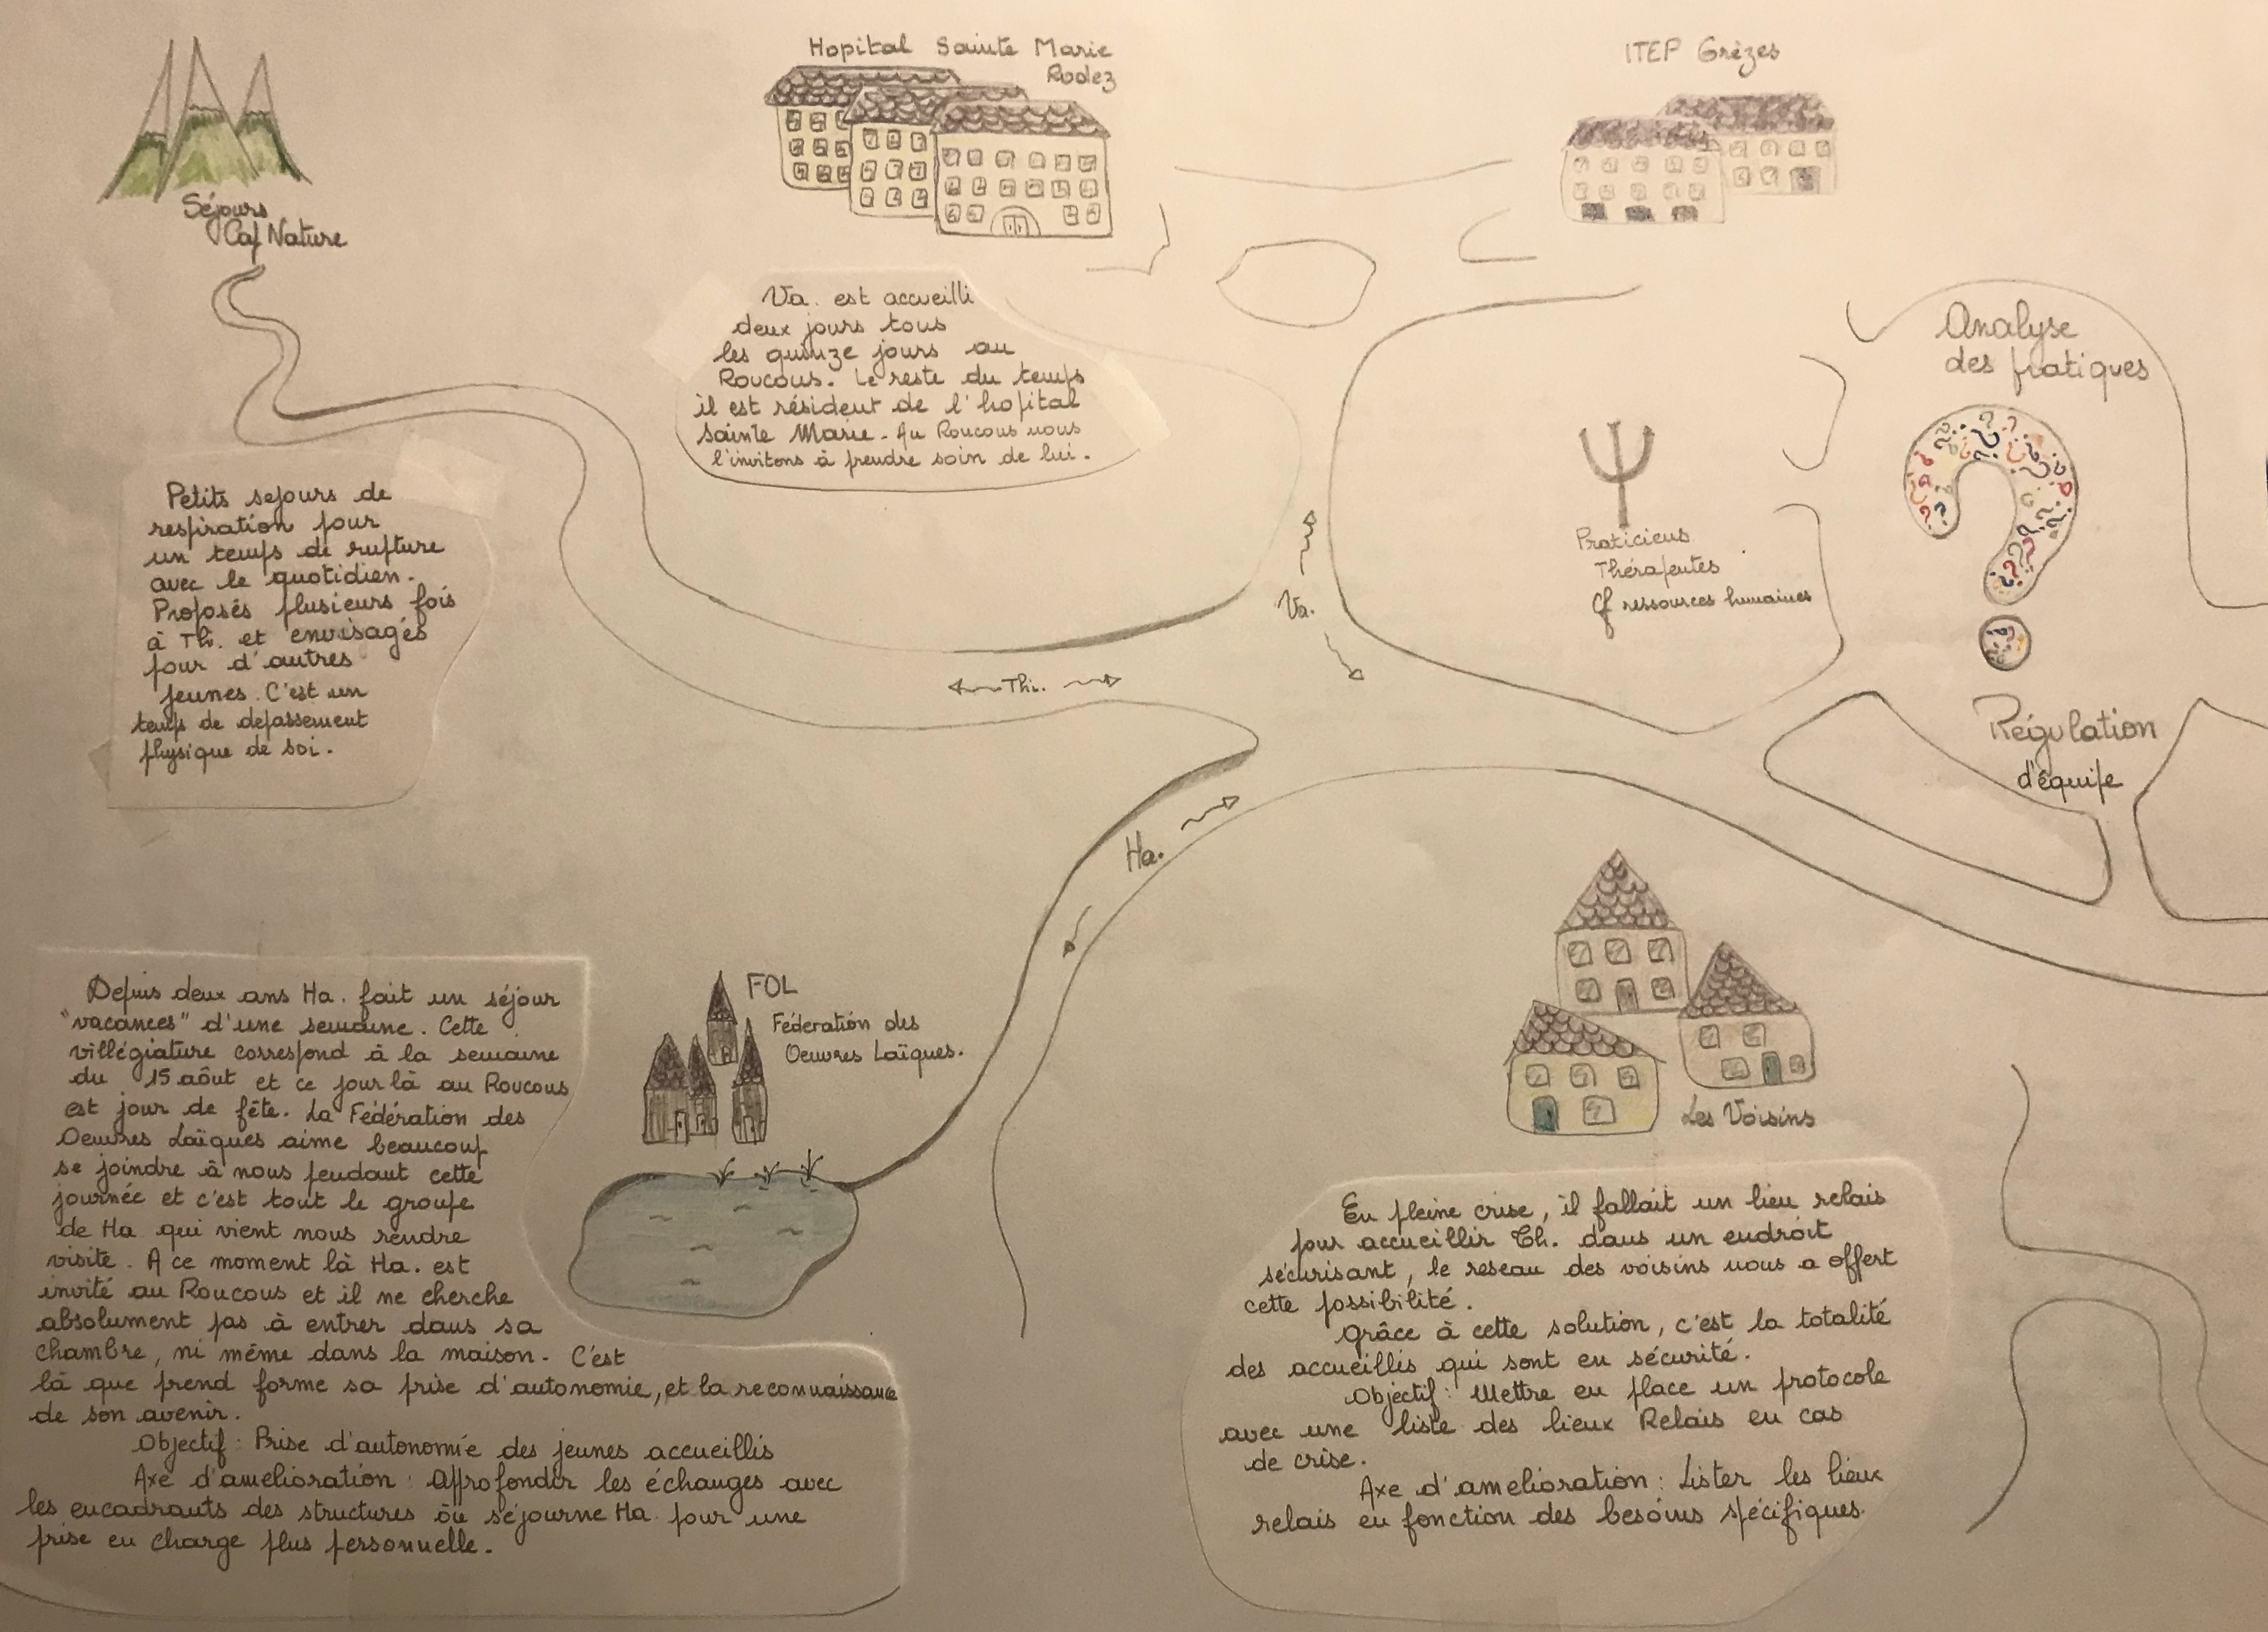 Hopital Sainte Marie
Rodez
ITEP Grèzes
Séjours
Cap Nature
Va. est accueilli
deux jours tous
les quinze jours au
Roucous. Le reste du temps
il est résident de l'hopital
Sainte Marie. Au Roucous nous
l'invitons à prendre soin de lui.
Analyse
des pratiques
Praticiens
Thérapeutes
Cf ressources humaines
Régulation
d'équipe
Petits sejours de
respiration pour
un temps de rupture
avec le quotidien.
Proposés plusieurs fois
à Th. et envisagés
pour d'autres
jeunes. C'est un
temps de depassement
physique de soi.
Va.
Th.
Ha.
Depuis deux ans Ha. fait un séjour
"vacances" d'une semaine. Cette
villégiature correspond à la semaine
du 15 aôut et ce jour là au Roucous
est jour de fête. La Fédération des
Oeuvres Laïques aime beaucoup
se joindre à nous pendant cette
journée et c'est tout le groupe
de Ha qui vient nous rendre
visite. A ce moment là Ha. est
invité au Roucous et il ne cherche
absolument pas à entrer dans sa
chambre, ni même dans la maison. C'est
là que prend forme sa prise d'autonomie, et la reconnaissance
de son avenir.
Objectif : Prise d'autonomie des jeunes accueillis
Axe d'amelioration : Approfondir les échanges avec
les encadrants des structures où séjourne Ha. pour une
prise en charge plus personnelle.
FOL
Féderation des
Oeuvres Laïques.
Les Voisins
En pleine crise, il fallait un lieu relais
pour accueillir Th. dans un endroit
sécurisant, le reseau des voisins nous a offert
cette possibilité.
Grâce à cette solution, c'est la totalité
des accueillis qui sont en sécurité.
Objectif : Mettre en place un protocole
avec une liste des lieux Relais en cas
de crise.
Axe d'amelioration : Lister les lieux
relais en fonction des besoins spécifiques.